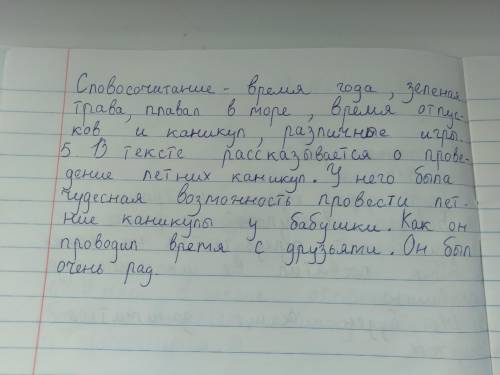 Словосочитание - время года, зеленая
трава, плавал в море, время отпус-
ков и каникул, различные игры.
5 В тексте рассказывается о прове-
дение летних каникул. У него была
чудесная возможность провести лет-
ние каникулы у бабушки. Как он
проводил время с друзьями. Он был
очень рад.